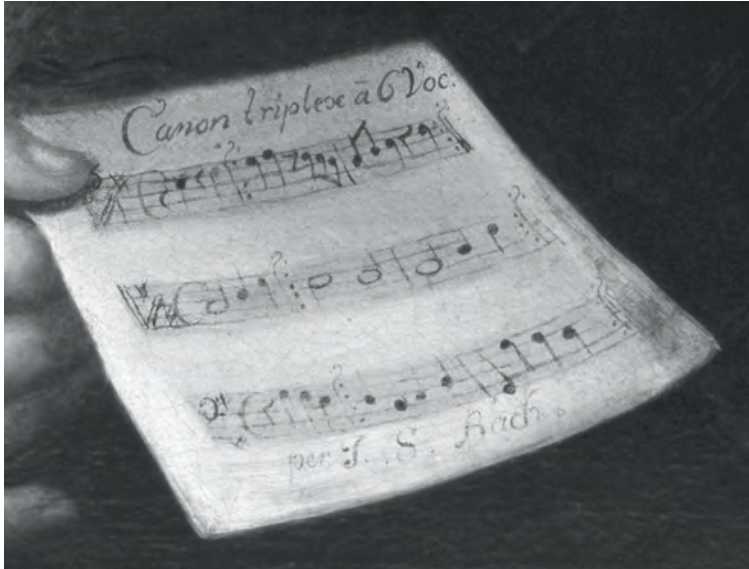 Canon triplex à 6 Voc.
per J. S. Bach.